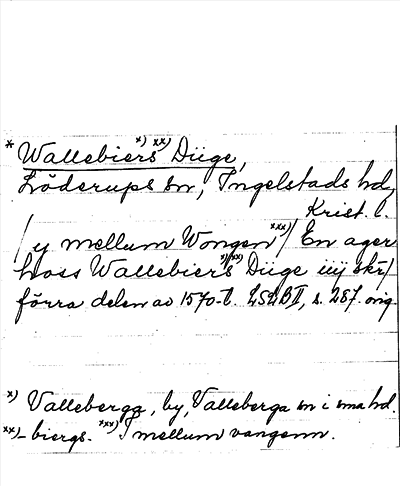 * Wallebiers x) xx) Düge,
Löderups sn, Ingelstads hd,
Krist. l.
/y mellum Wongen xxx)/ En ager
hoss Wallebiers x) xx) Düge iiij skr/
förra delen av 1570-t. LSLB II, s. 287. orig.
x) Valleberga, by, Valleberga sn i sma hd.
xx) -biergs. xxx) I mellum vangenn.